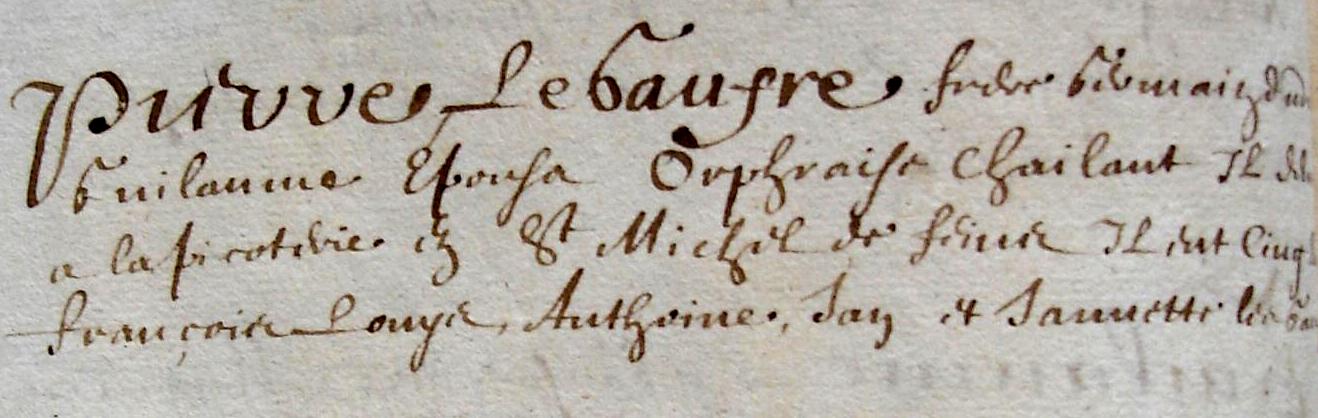 Pierre Le Gaufre frere Germain dud
Guilaume Espousa Orphraise Chailant Il
a la picoterie en St Michel de feins Il eut Cinq
françois Louys, Anthoine, Jan et Jannette les Gau